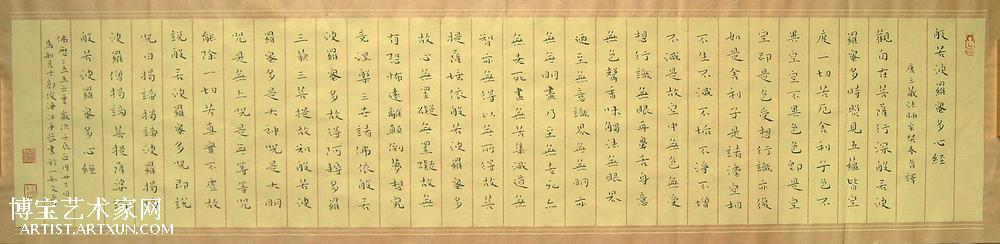 般若波羅蜜多心經
唐三藏法師玄奘奉旨譯
觀自在菩薩行深般若波
羅蜜多時照見五蘊皆空
度一切苦厄舍利子色不
異空空不異色色即是空
空即是色受想行識亦復
如是舍利子是諸灋空相
不生不滅不垢不淨不增
不減是故空中無色無受
想行識無眼耳鼻舌身意
無色聲香味觸法無眼界
迺至無意識界無無明亦
無無明盡乃至無老死亦
無老死盡無苦集滅道無
智亦無得以無所得故菩
提薩埵依般若波羅蜜多
故心無罣礙無罣礙故無
有恐怖遠離顛倒夢想究
竟涅槃三世諸佛依般若
波羅蜜多故得阿耨多羅
三藐三菩提故知般若波
羅蜜多是大神咒是大明
咒是無上咒是無等等咒
能除一切苦真實不虛故
說般若波羅蜜多咒即說
咒曰揭諦揭諦波羅揭
波羅僧揭諦菩提薩婆
般若波羅蜜多心經
佛歷二五五二年歲次戊子
博宝艺术家网
ARTIST.ARTXUN.COM